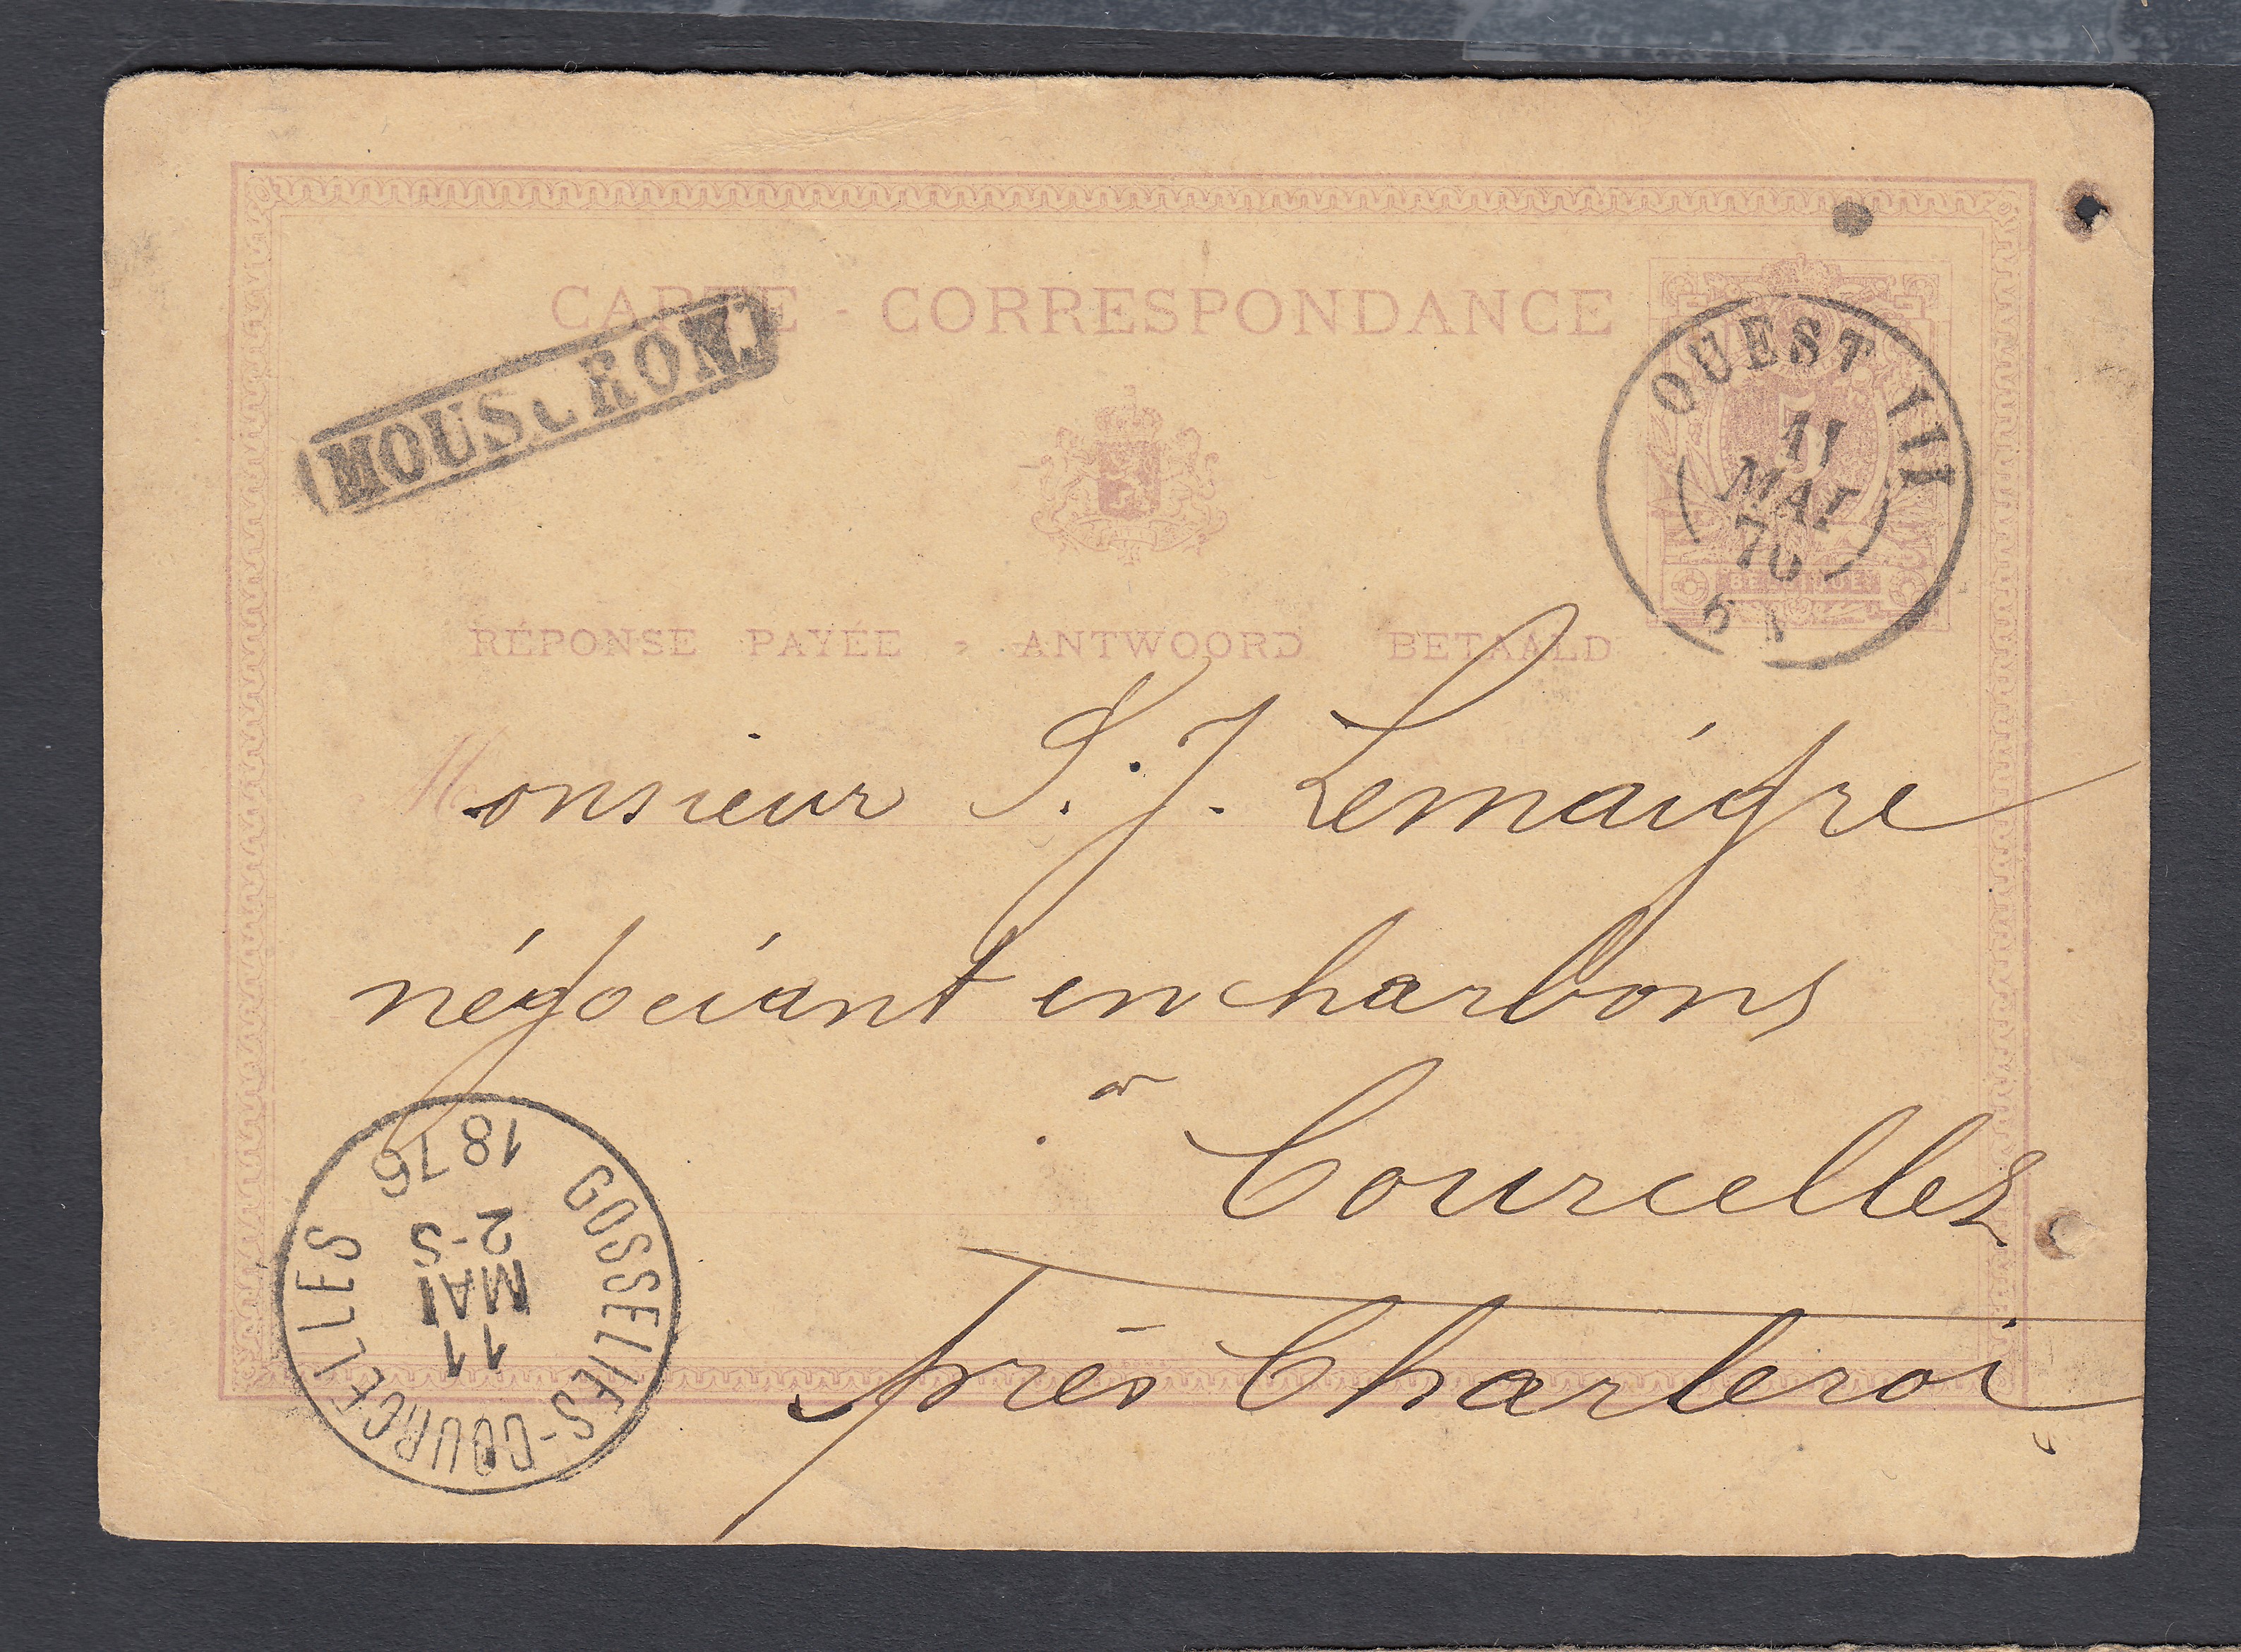 CARTE - CORRESPONDANCE
MOUSCRON
OUEST III
11
MAI
76
5
BELGIQUE
RÉPONSE PAYÉE - ANTWOORD BETAALD
Monsieur S. J. Lemaigre
négociant en charbons
à
Courcelles
près Charleroi
GOSSELIES-COURCELLES
11
MAI
2-S
1876